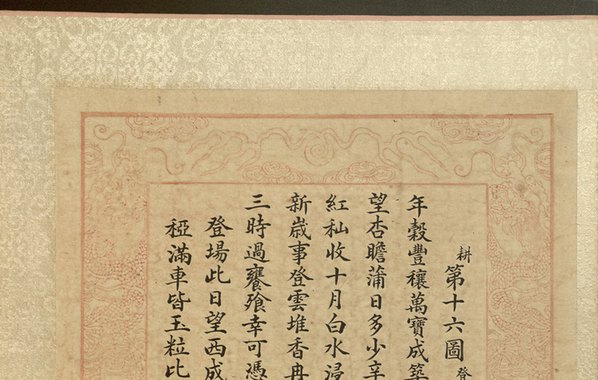 耕第十六圖登
年穀豐穰萬寶成築
望杏瞻蒲日多少辛
紅秈收十月白水浸
新歲事登雲堆香冉
三時過饔飱幸可憑
登場此日望西成
稏滿車皆玉粒比